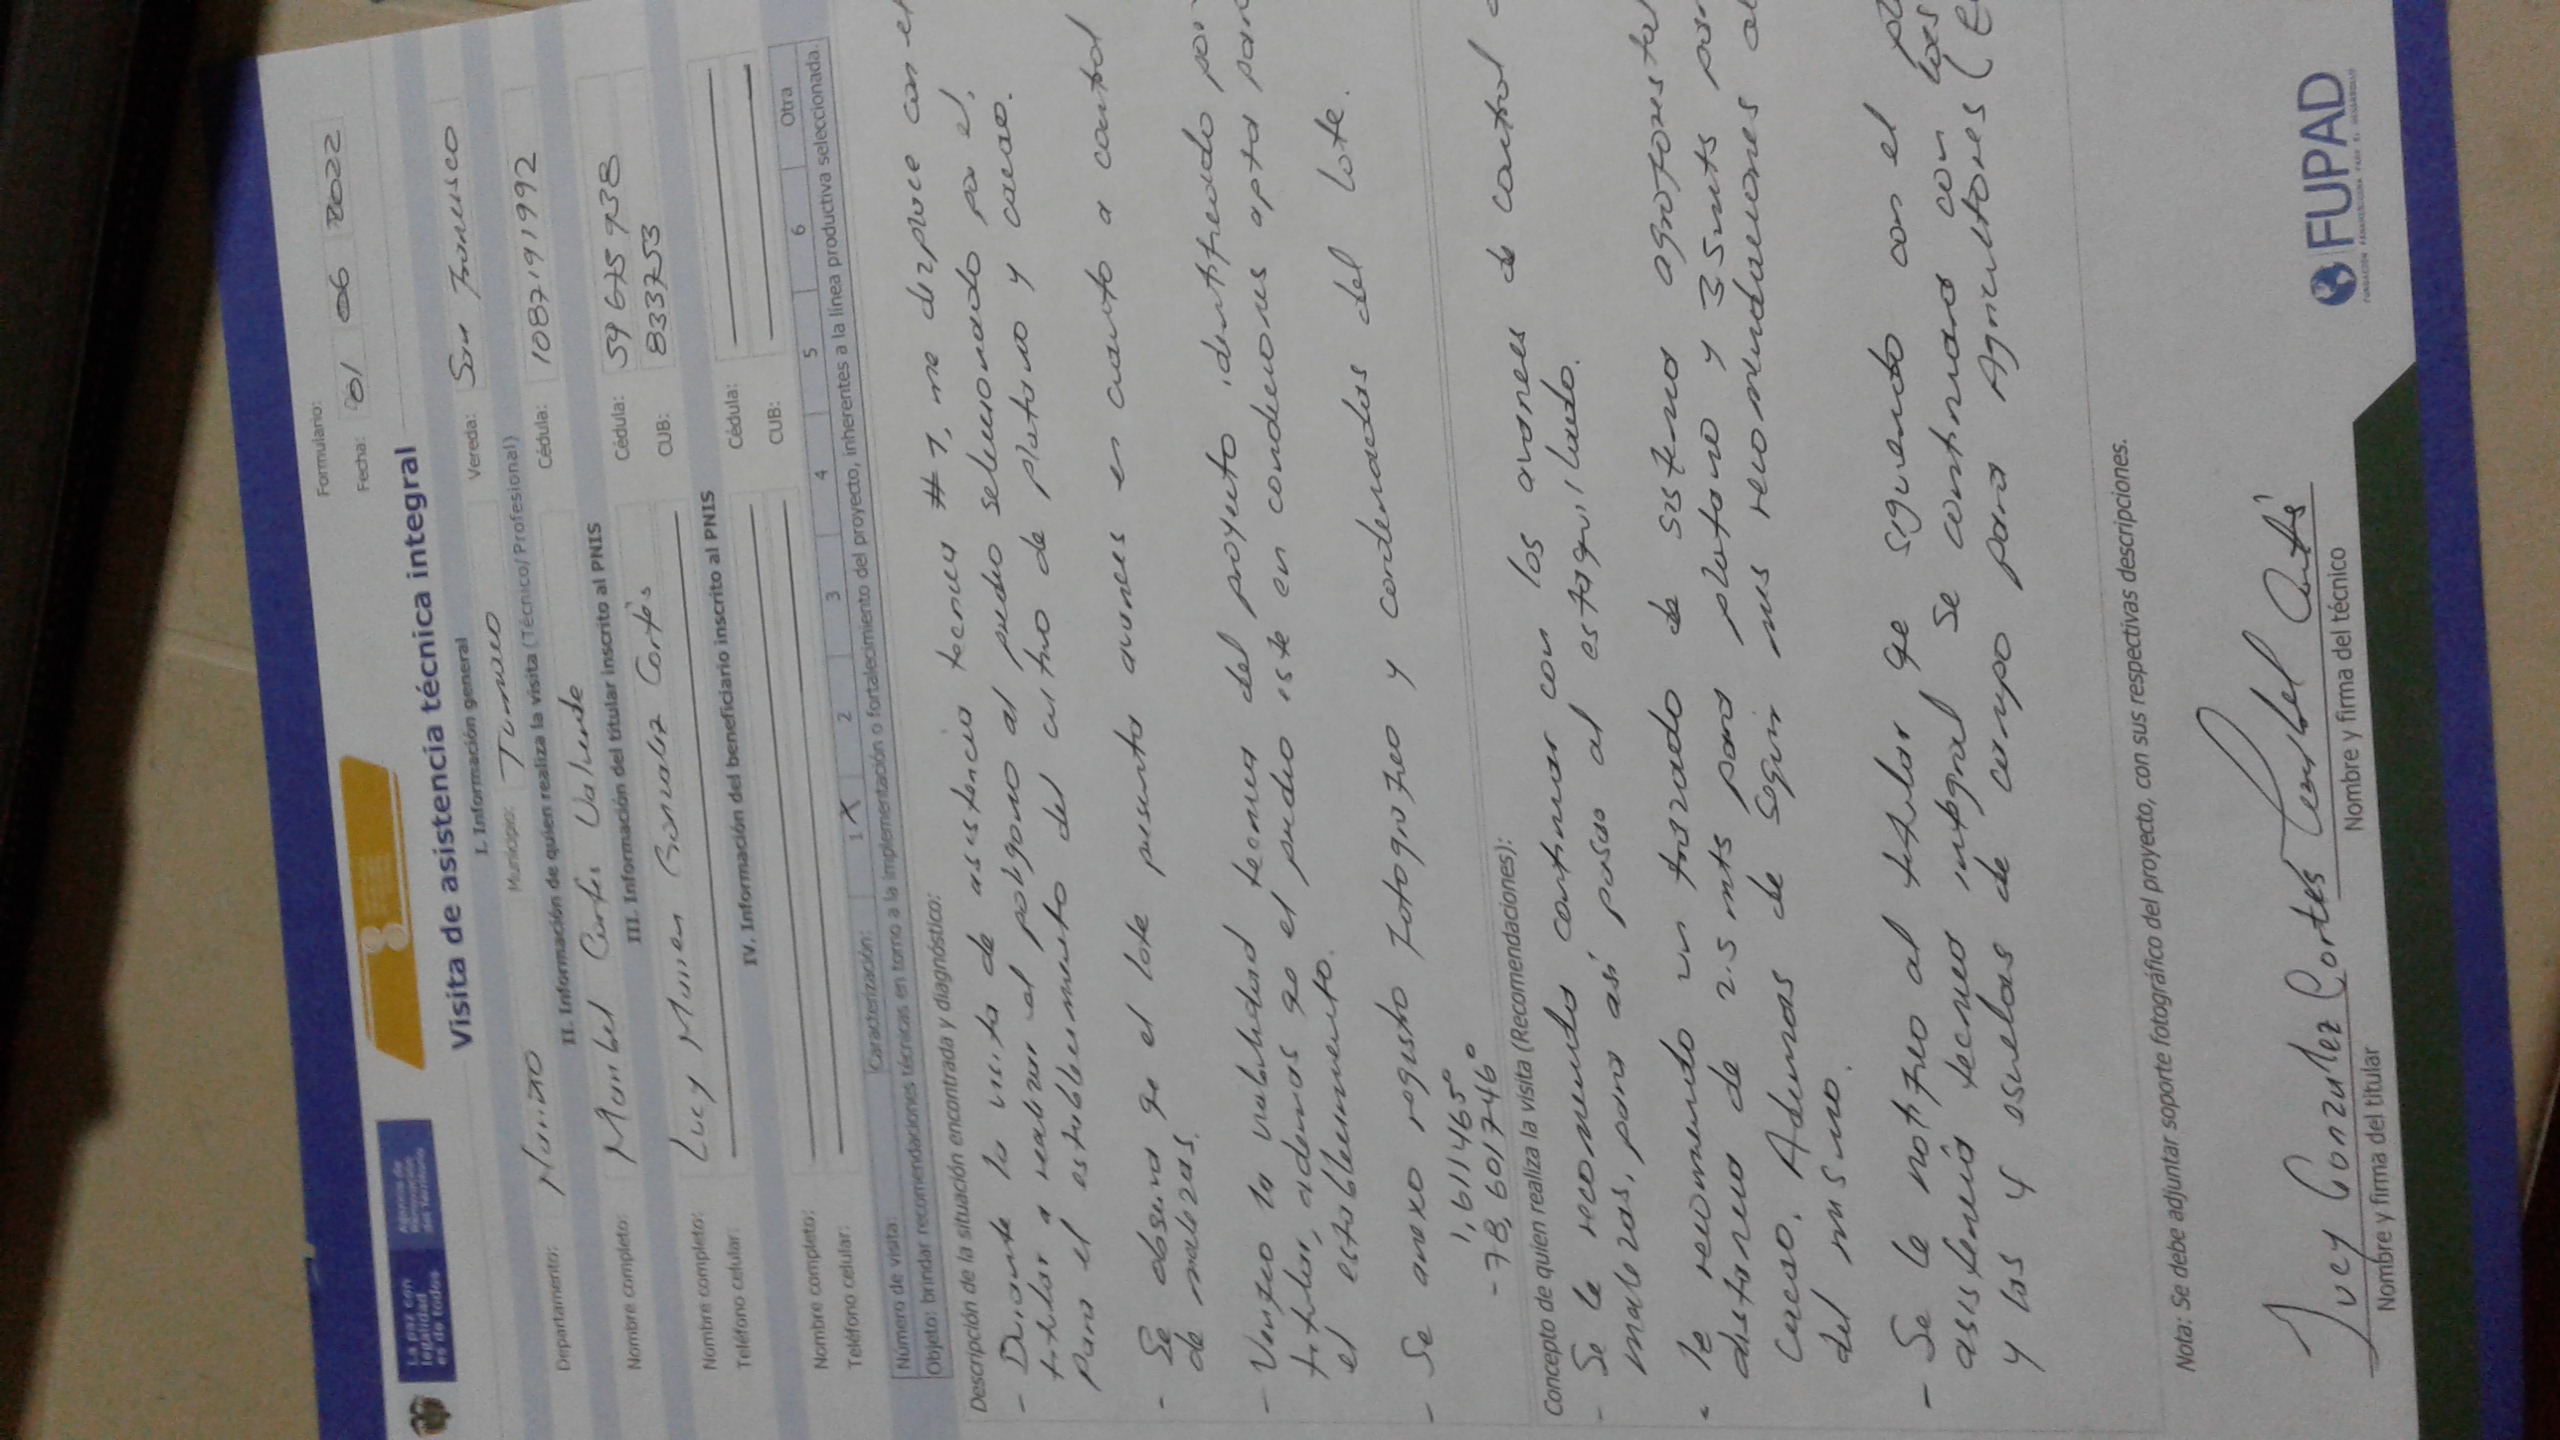 La paz con
legalidad
es de todos
Agencia de
Renovación
del Territorio
Formulario:
Fecha: 01 06 2022
Visita de asistencia técnica integral
I. Información general
Departamento: Nariño Municipio: Tumaco Vereda: San Francisco
II. Información de quien realiza la visita (Técnico/Profesional)
Nombre completo: Maribel Cortes Valverde Cédula: 1087191992
III. Información del titular inscrito al PNIS
Nombre completo: Lucy Mirien Gonzalez Cortés Cédula: 59675938
Teléfono celular: CUB: 833753
IV. Información del beneficiario inscrito al PNIS
Nombre completo: Cédula:
Teléfono celular: CUB:
Número de visita: Caracterización: 1 X 2 3 4 5 6 Otra
Objeto: brindar recomendaciones técnicas en torno a la implementación o fortalecimiento del proyecto, inherentes a la línea productiva seleccionada.
Descripción de la situación encontrada y diagnóstico:
- Durante la visita de asistencia tecnica # 1, me desplace con el
titular a realizar el poligono al predio seleccionado por el,
para el establecimiento del cultivo de platano y cacao.
- Se observa qe el lote presenta avances en cuanto a control
de malezas.
- Verifico la viabilidad tecnica del proyecto identificado por
titular, ademas qe el predio este en condiciones apta para
el establecimiento.
- Se anexo registro fotografico y cordenadas del lote.
1,611465°
-78,6017746°
Concepto de quien realiza la visita (Recomendaciones):
- Se le recomienda continuar con los avances de control
malezas, para asi paso al estaquillado.
- le recomiendo un trazado de sistema agroforestal
distancia de 2.5 mts para platano y 3.5 mts para
cacao. Ademas de seguir mis recomendaciones
del mismo.
- Se le notifico al titular qe siguiendo con el
asistencia tecnica integral se continuara con
y las y escuelas de campo para Agricultores
Nota: Se debe adjuntar soporte fotográfico del proyecto, con sus respectivas descripciones.
Lucy Gonzalez Cortes
Nombre y firma del titular
Maribel Cortés
Nombre y firma del técnico
FUPAD
FUNDACIÓN PANAMERICANA PARA EL DESARROLLO